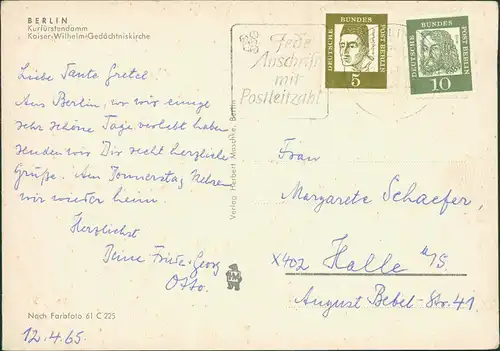 BERLIN
Kurfürstendamm
Kaiser-Wilhelm-Gedächtniskirche
Jede
Anschrift
mit
Postleitzahl
DEUTSCHE BUNDES POST BERLIN
5
DEUTSCHE BUNDES POST BERLIN
10
Liebe Tante Gretel
Aus Berlin, wo wir einige
sehr schöne Tage verlebt haben
senden wir Dir recht herzliche
Grüße. Am Donnerstag
wir wieder heim.
Herzlichst
Deine Friede, Georg
Otto.
Verlag Herbert Maschke, Berlin
HM
Frau
Margarete Schaefer,
X402 Halle a/S.
August Bebel-Str. 41
Nach Farbfoto 61 C 225
12.4.65